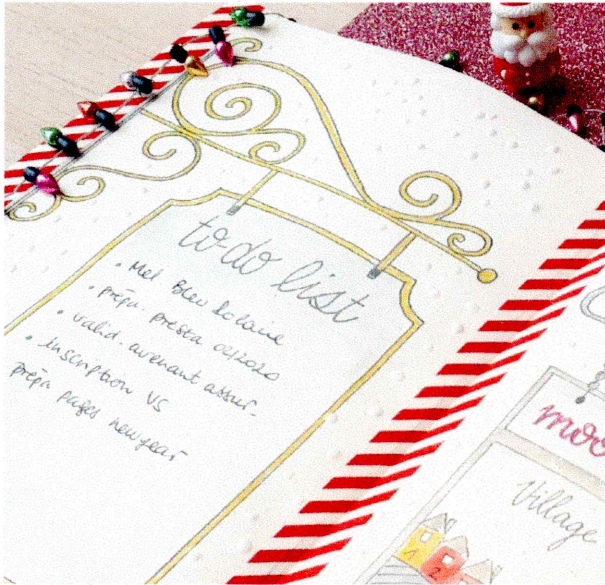 to-do list
• Mel
• prépa. presta
• valid. avenant assur.
• inscription VS
prépa pages newyear
moo
Village
1
2